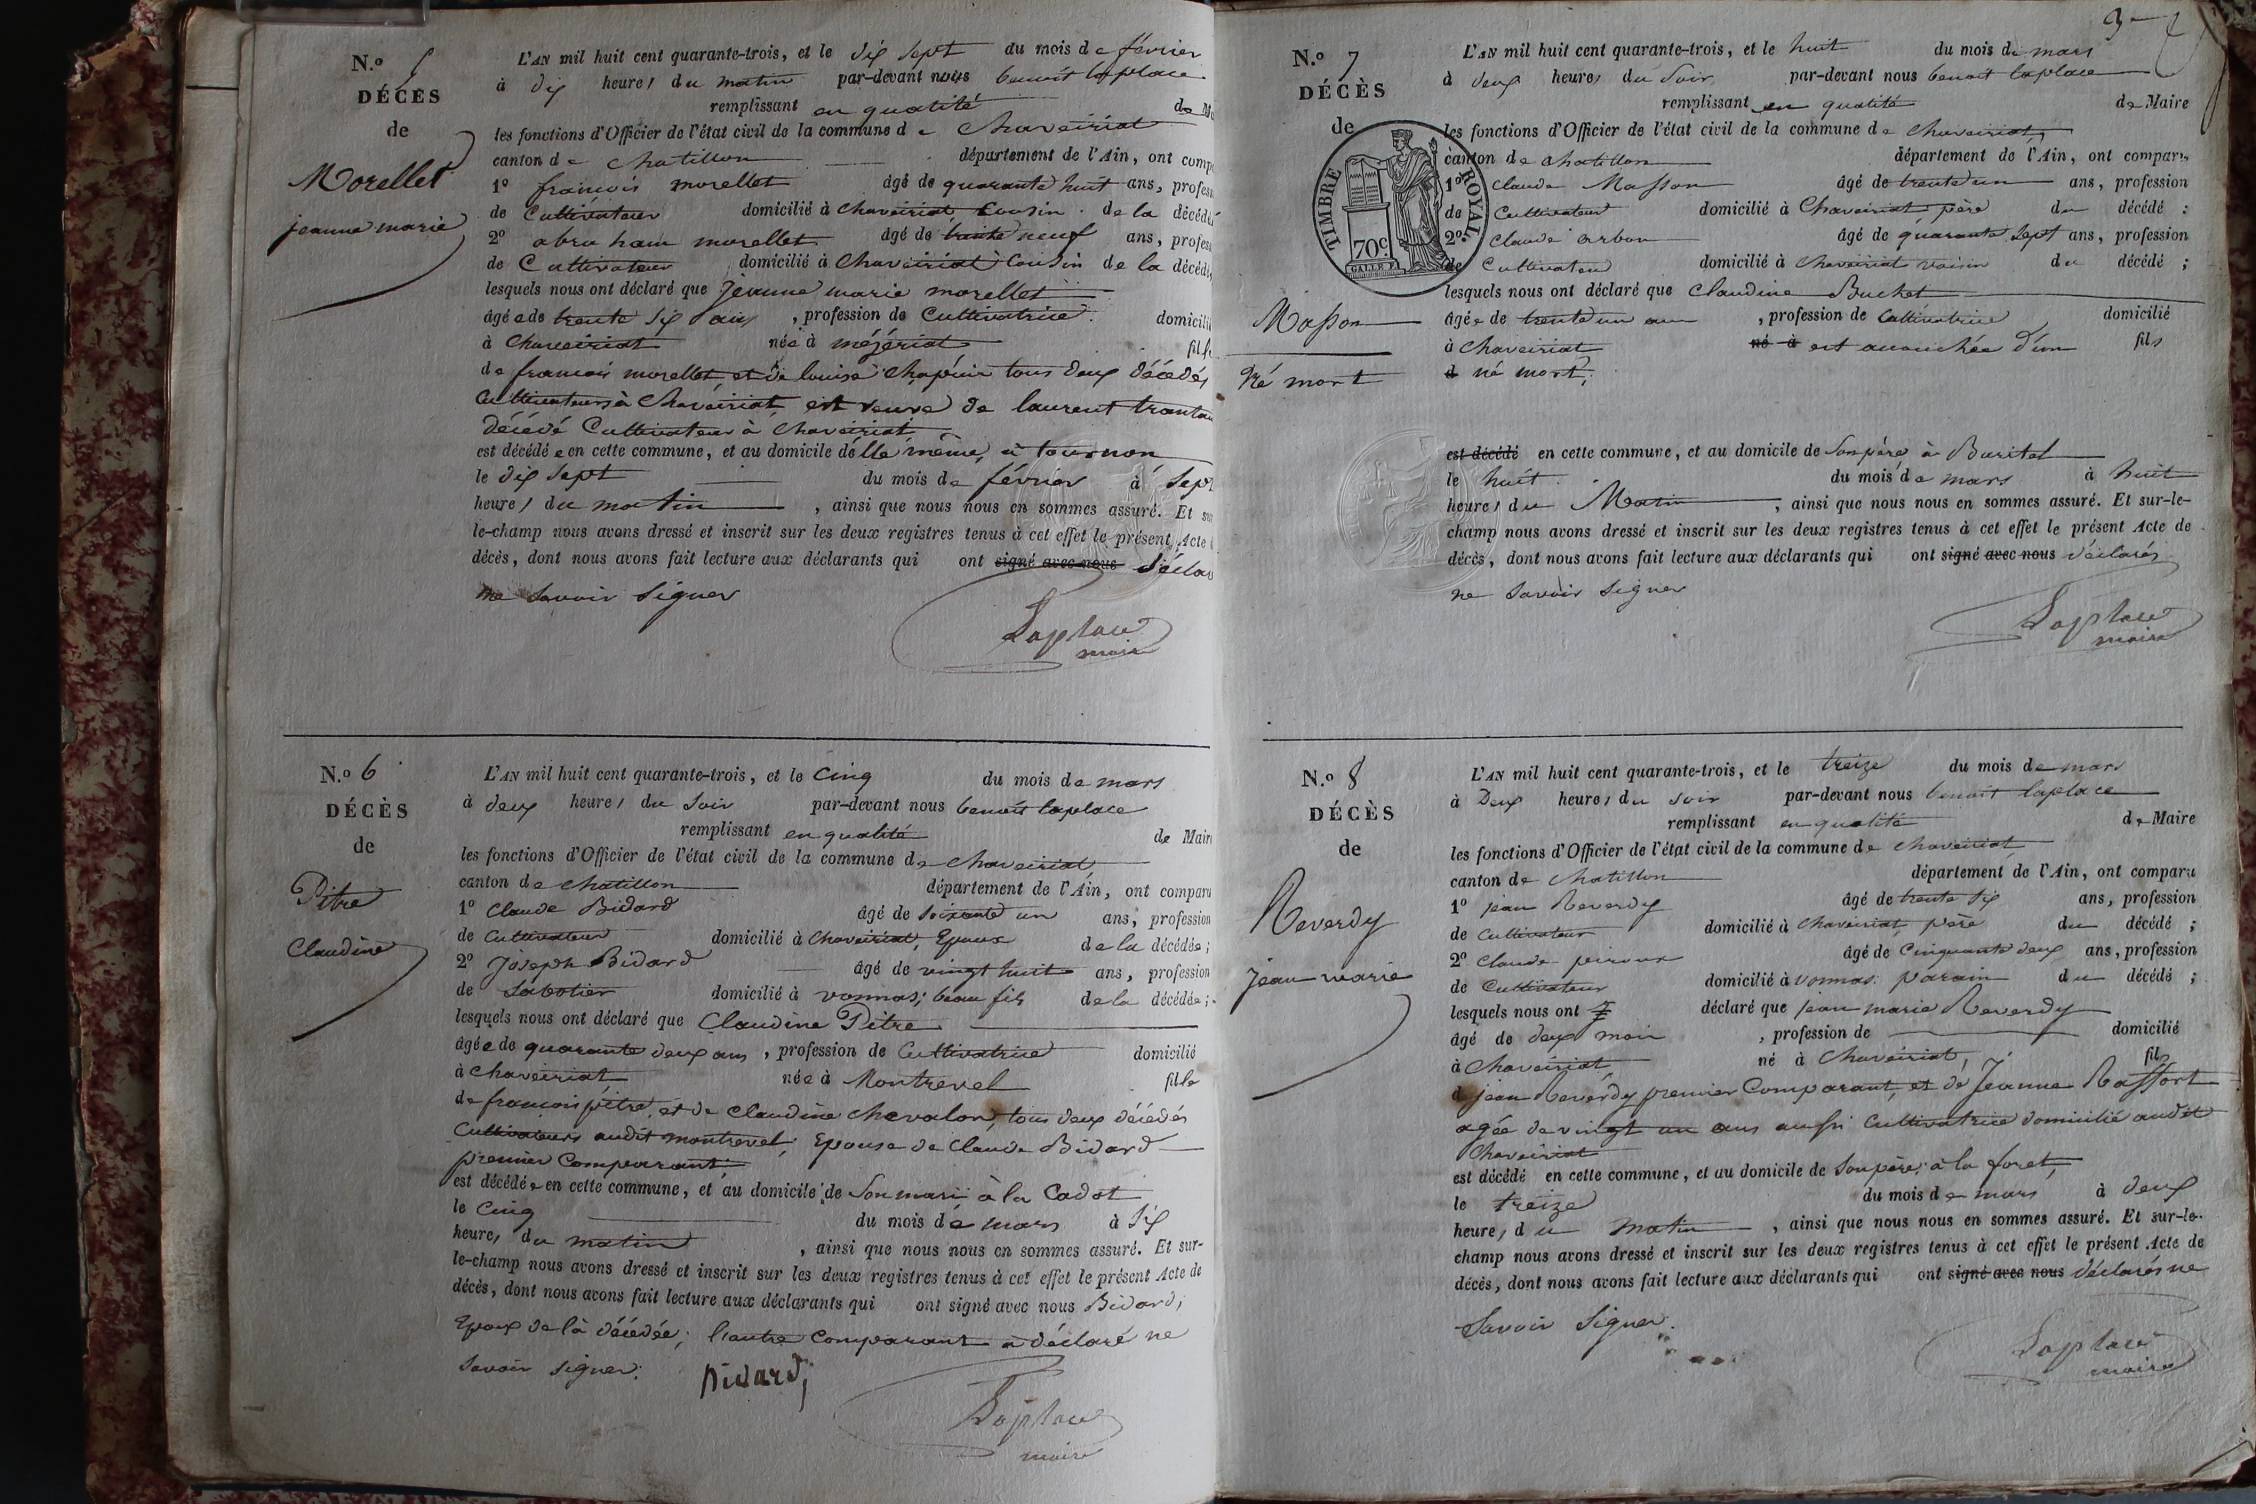 N.o 5
DÉCÈS
de
Morellet
jeanne marie
L'AN mil huit cent quarante-trois, et le dix sept du mois de février
à dix heures du matin par-devant nous benoit laplace
remplissant en qualité de
les fonctions d'Officier de l'état civil de la commune de Chaveiriat
canton de chatillon département de l'Ain, ont
1o françois morellet âgé de quarante huit ans,
de Cultivateur domicilié à chaveiriat, Cousin de la
2o abraham morellet âgé de trente neuf ans,
de Cultivateur domicilié à Chaveiriat Cousin de la
lesquels nous ont déclaré que jeanne marie morellet
âgée de trente six ans, profession de Cultivatrice
à Chaveiriat née à mézériat
de françois morellet, et de louise tous deux décédés
Cultivateurs à Chaveiriat, est veuve de laurent
décédé Cultivateur à Chaveiriat
est décédée en cette commune, et au domicile d'elle même, à tournon
le dix sept du mois de février à sept
heures du matin, ainsi que nous nous en sommes assuré. Et
le-champ nous avons dressé et inscrit sur les deux registres tenus à cet effet le présent Acte
décès, dont nous avons fait lecture aux déclarants qui ont signé avec nous
ne savoir signer
Laplace
maire
N.o 6
DÉCÈS
de
Pitre
Claudine
L'AN mil huit cent quarante-trois, et le cinq du mois de mars
à deux heures du soir par-devant nous benoit laplace
remplissant en qualité de Maire
les fonctions d'Officier de l'état civil de la commune de chaveiriat,
canton de chatillon département de l'Ain, ont comparu
1o Claude Bidard âgé de soixante un ans, profession
de Cultivateur domicilié à chaveiriat, Epoux de la décédée;
2o Joseph Bidard âgé de vingt huit ans, profession
de Sabotier domicilié à vonnas; beau fils de la décédée;
lesquels nous ont déclaré que Claudine Pitre
âgée de quarante deux ans, profession de Cultivatrice domicilié
à Chaveiriat née à Montrevel fille
de françois pitre, et de Claudine Chevalon, tous deux décédés
Cultivateurs audit montrevel; Epouse de Claude Bidard
premier Comparant.
est décédée en cette commune, et au domicile de son mari à la Cadot
le Cinq du mois de mars à six
heures du matin, ainsi que nous nous en sommes assuré. Et sur-
le-champ nous avons dressé et inscrit sur les deux registres tenus à cet effet le présent Acte de
décès, dont nous avons fait lecture aux déclarants qui ont signé avec nous Bidard;
Epoux de la décédée; l'autre Comparant a déclaré ne
savoir signer.
Bidard;
Laplace
maire
3
N.o 7
DÉCÈS
de
TIMBRE ROYAL
70c.
Masson
Né mort
L'AN mil huit cent quarante-trois, et le huit du mois de mars
à deux heures du soir par-devant nous benoit laplace
remplissant en qualité de Maire
les fonctions d'Officier de l'état civil de la commune de chaveiriat,
canton de chatillon département de l'Ain, ont comparu
1o Claude Masson âgé de trente un ans, profession
de Cultivateur domicilié à Chaveiriat père du décédé;
2o Claude arbon âgé de quarante sept ans, profession
de Cultivateur domicilié à Chaveiriat voisin du décédé;
lesquels nous ont déclaré que Claudine Buchet
âgée de trente un ans, profession de Cultivatrice domicilié
à Chaveiriat né à est accouchée d'un fils
d né mort;
est décédé en cette commune, et au domicile de son père à Buritel
le huit du mois de mars à huit
heures du Matin, ainsi que nous nous en sommes assuré. Et sur-le-
champ nous avons dressé et inscrit sur les deux registres tenus à cet effet le présent Acte de
décès, dont nous avons fait lecture aux déclarants qui ont signé avec nous déclarés
ne savoir signer
Laplace
maire
N.o 8
DÉCÈS
de
Reverdy
jean marie
L'AN mil huit cent quarante-trois, et le treize du mois de mars
à Deux heures du soir par-devant nous benoit laplace
remplissant en qualité de Maire
les fonctions d'Officier de l'état civil de la commune de chaveiriat
canton de chatillon département de l'Ain, ont comparu
1o jean Reverdy âgé de trente six ans, profession
de Cultivateur domicilié à Chaveiriat père du décédé;
2o Claude âgé de Cinquante deux ans, profession
de Cultivateur domicilié à vonnas parain du décédé;
lesquels nous ont déclaré que jean marie Reverdy
âgé de deux mois, profession de domicilié
à Chaveiriat né à Chaveiriat, fils
d jean Reverdy premier Comparant, et de Jeanne Raffort
agée de vingt un ans aussi Cultivatrice domicilié audit
Chaveiriat
est décédé en cette commune, et au domicile de son père, à la foret,
le treize du mois de mars à deux
heures du matin, ainsi que nous nous en sommes assuré. Et sur-le-
champ nous avons dressé et inscrit sur les deux registres tenus à cet effet le présent Acte de
décès, dont nous avons fait lecture aux déclarants qui ont signé avec nous déclarés ne
savoir signer.
Laplace
maire